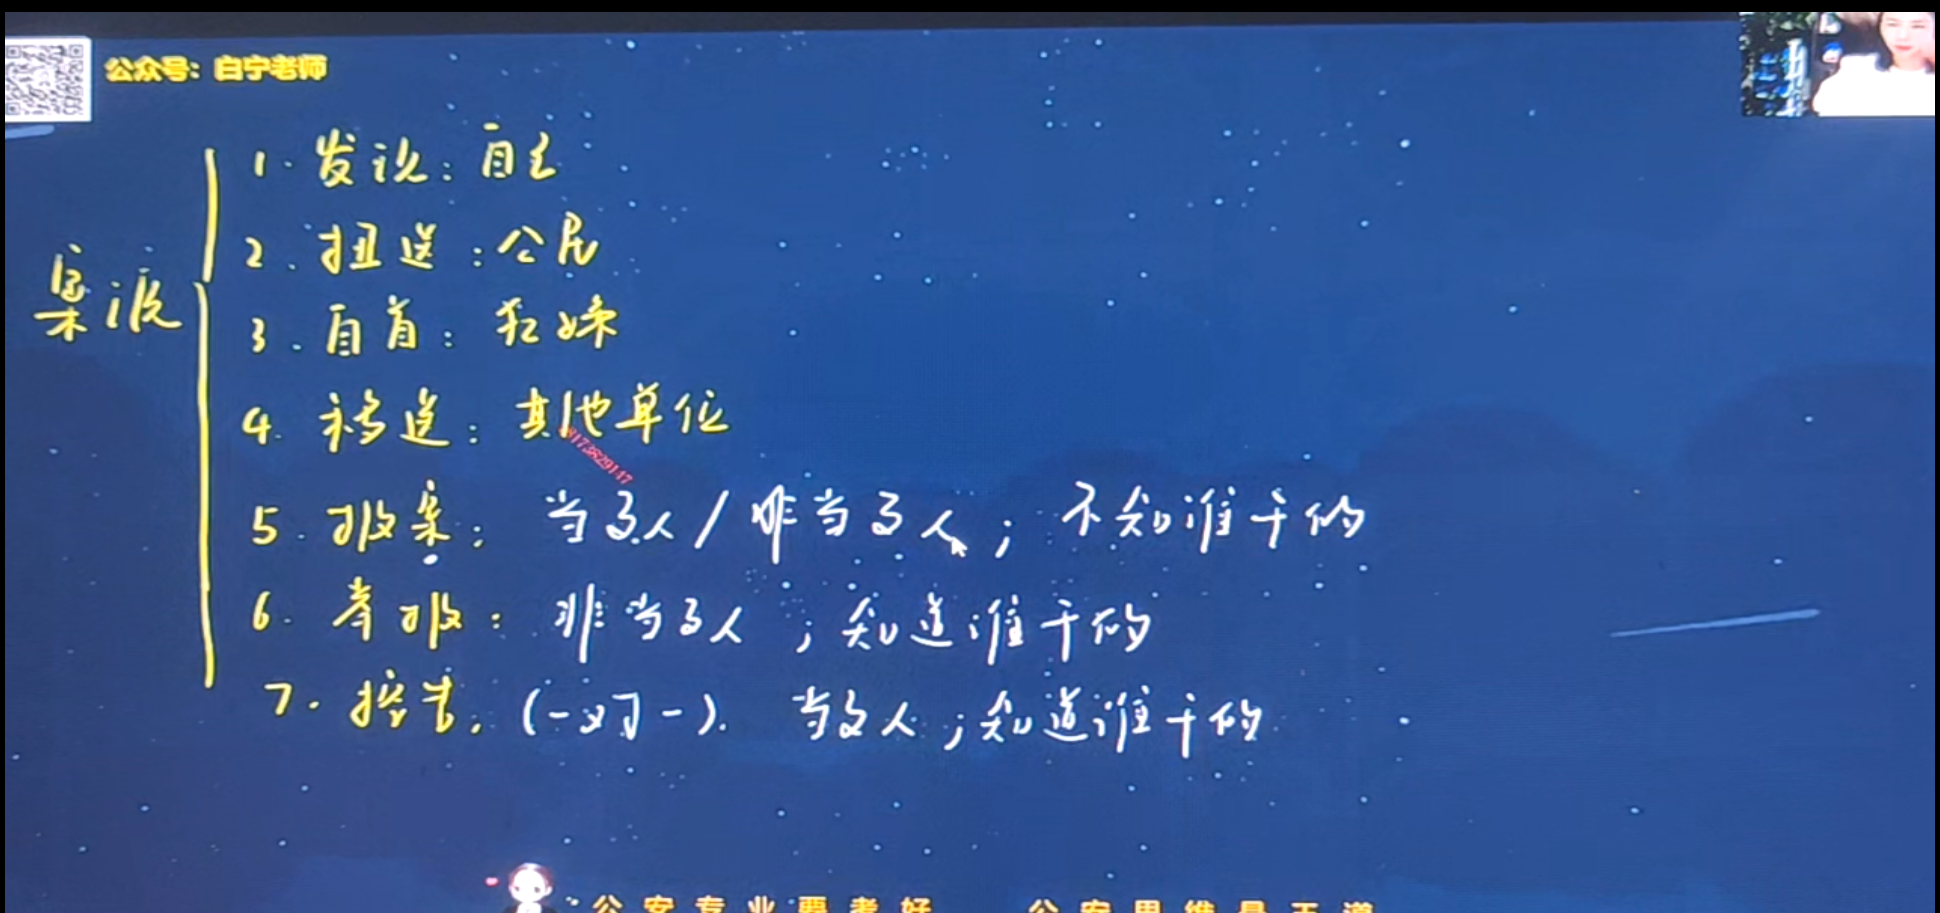 公众号：白宁老师
案源
1. 发现：自己
2. 扭送：公民
3. 自首：犯嫌
4. 移送：其他单位
5. 报案：当事人/非当事人；不知谁干的
6. 举报：非当事人；知道谁干的
7. 控告：(一对一). 当事人；知道谁干的
公安专业要考好 公安思维是王道